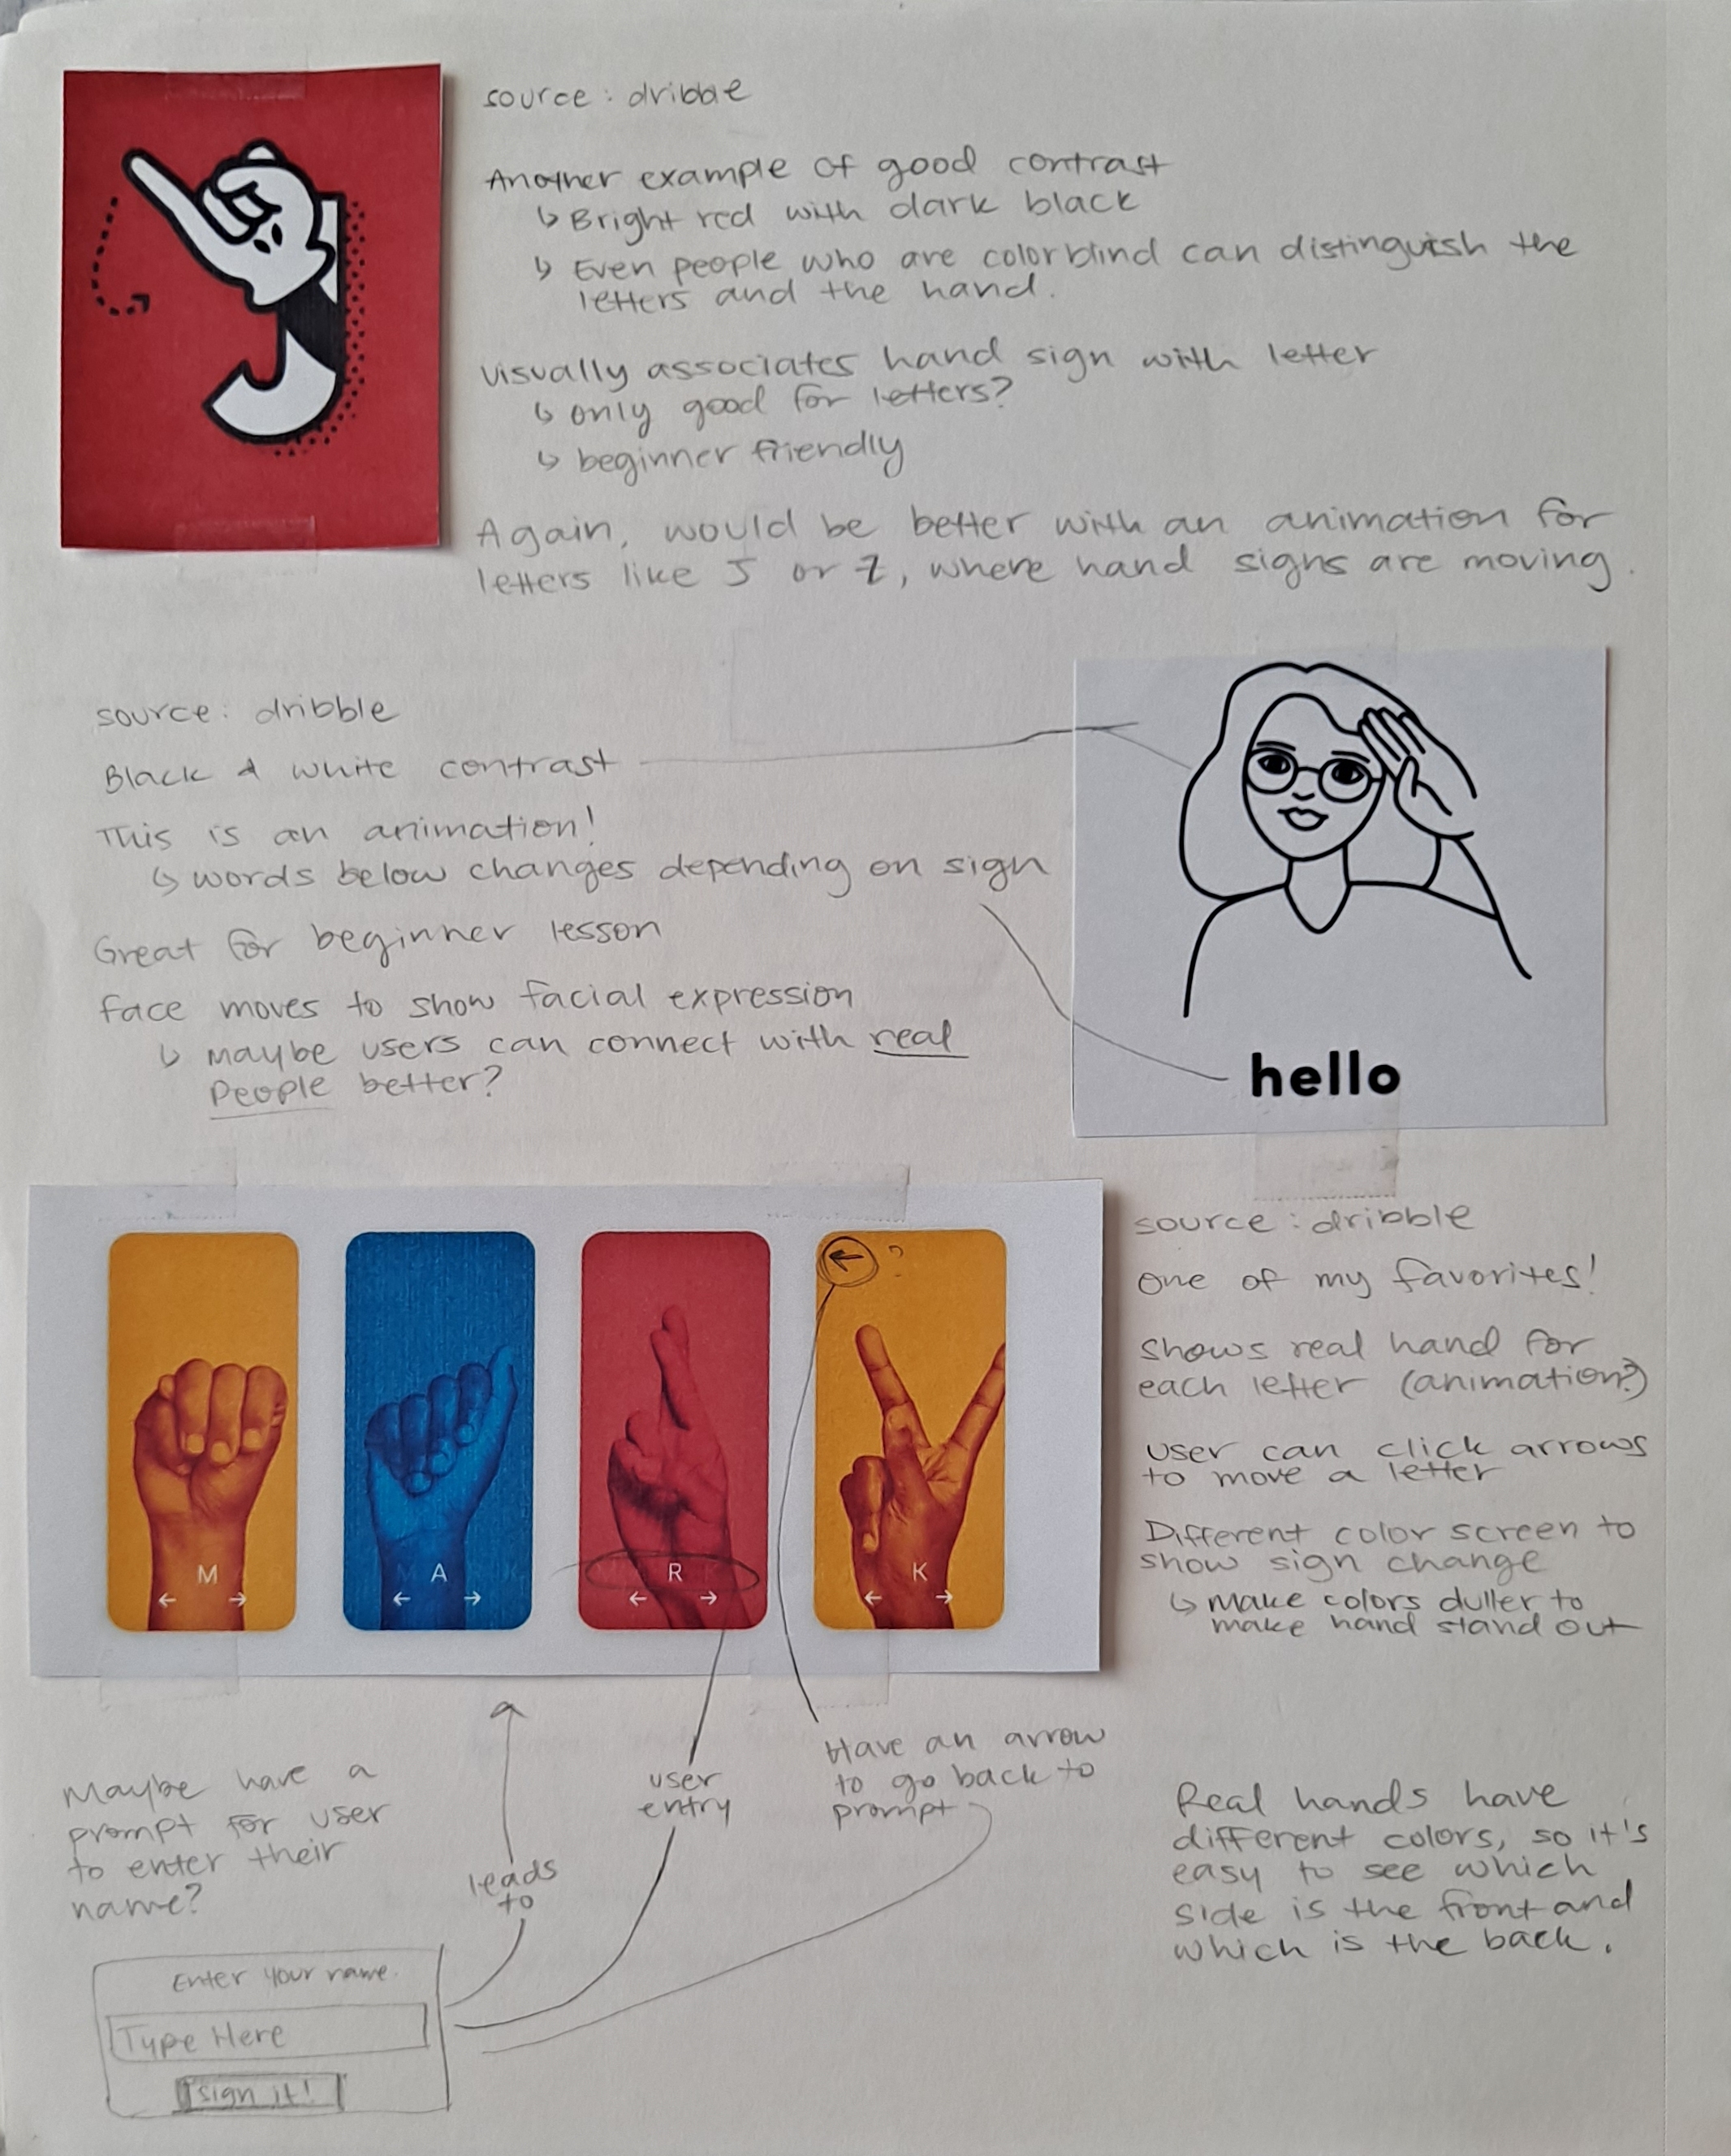 source: dribble
Another example of good contrast
↳ Bright red with dark black
↳ Even people who are colorblind can distinguish the
letters and the hand.
visually associates hand sign with letter
↳ only good for letters?
↳ beginner friendly
Again, would be better with an animation for
letters like J or Z, where hand signs are moving.
J
source: dribble
Black & white contrast
This is an animation!
↳ words below changes depending on sign
Great for beginner lesson
Face moves to show facial expression
↳ Maybe users can connect with real
People better?
hello
M
← →
A
← →
R
← →
← ?
K
← →
source: dribble
one of my favorites!
shows real hand for
each letter (animation?)
user can click arrows
to move a letter
Different color screen to
show sign change
↳ make colors duller to
make hand stand out
Maybe have a
prompt for user
to enter their
name?
leads
to
user
entry
Have an arrow
to go back to
prompt
Real hands have
different colors, so it's
easy to see which
side is the front and
which is the back.
Enter your name.
Type Here
sign it!